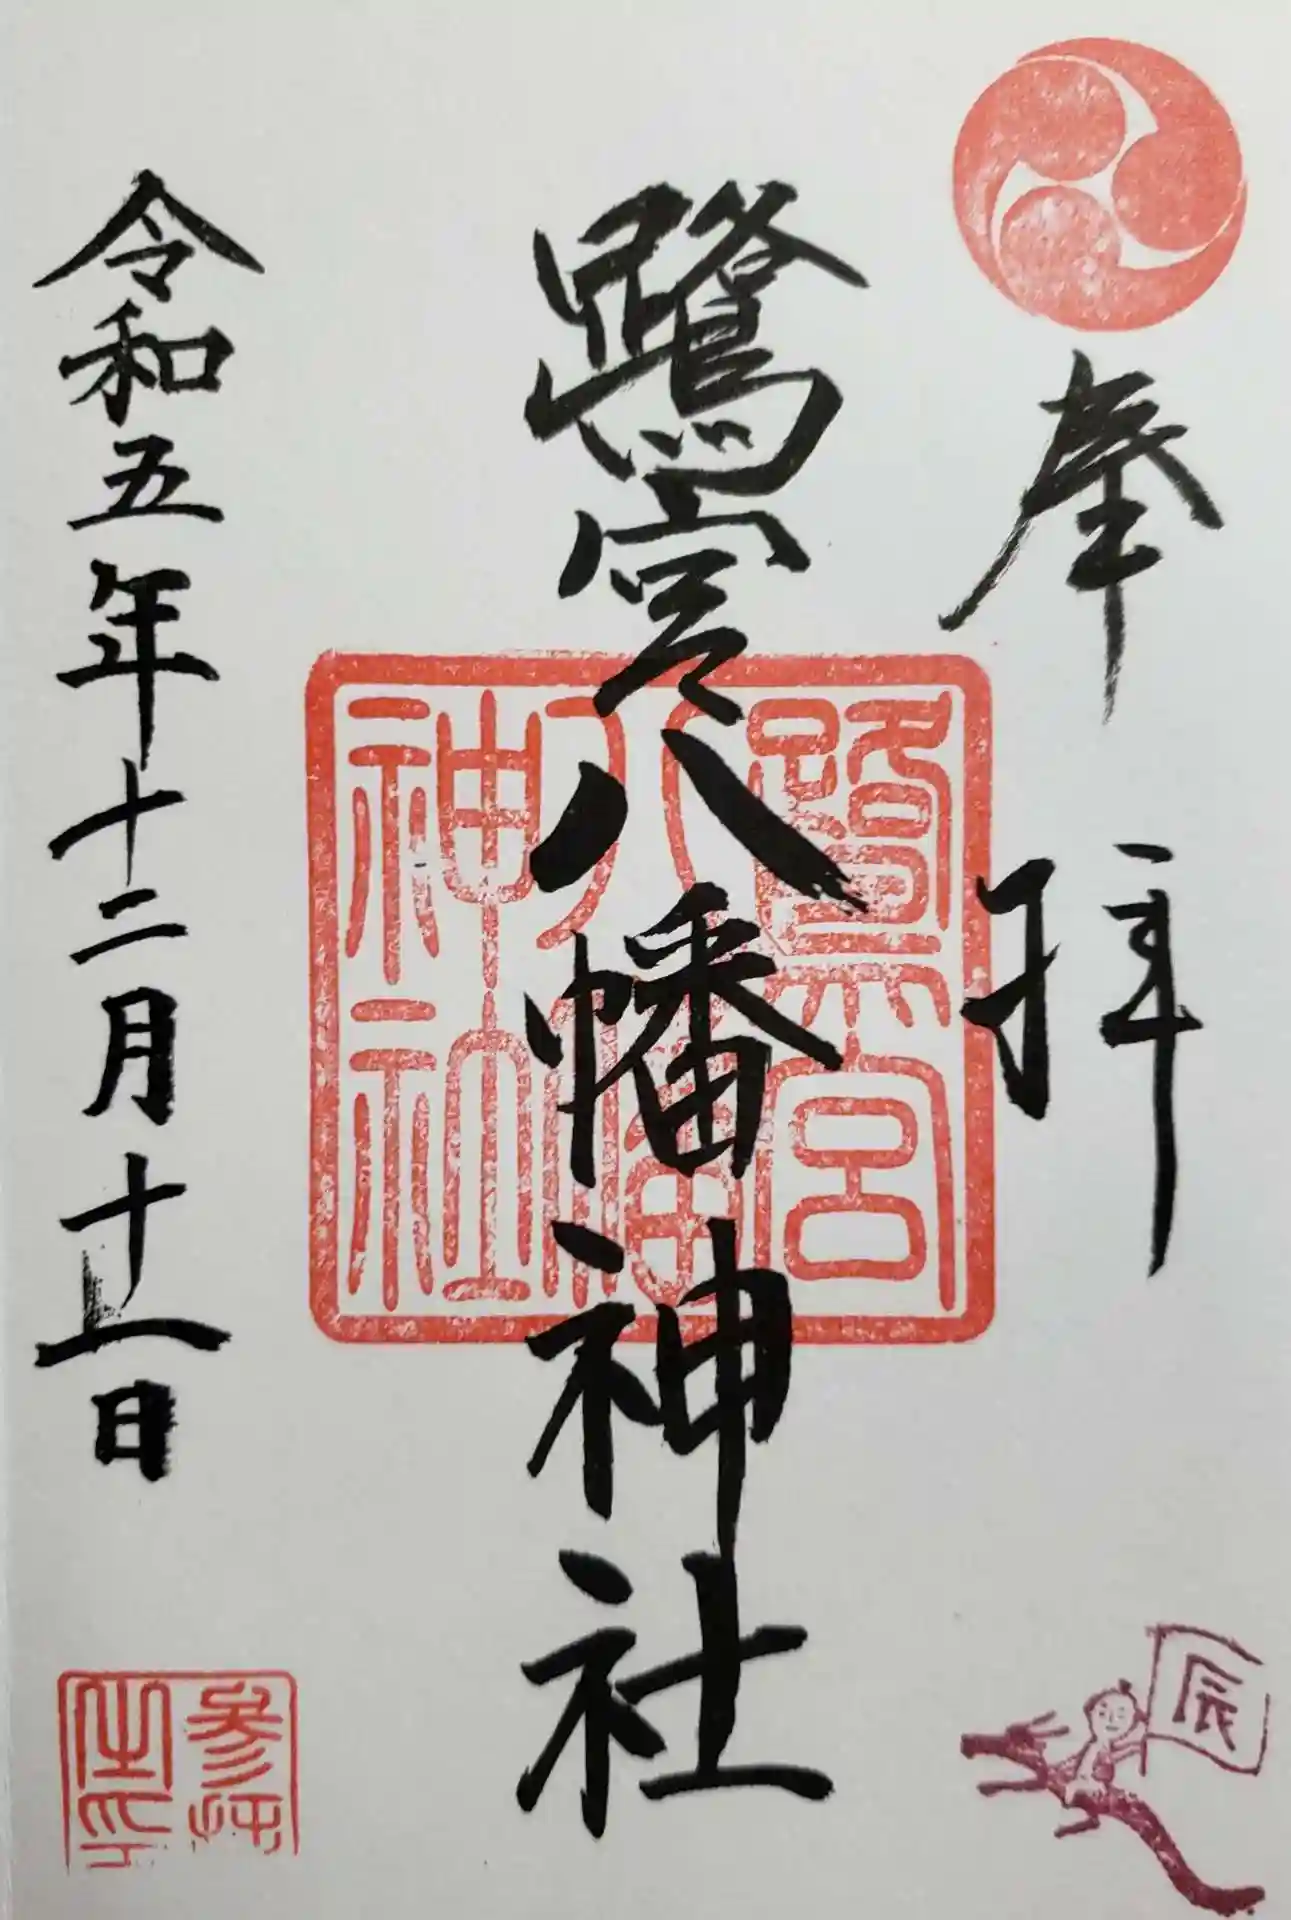 奉拝
鷺宮八幡神社
鷺宮
八幡
神社
令和五年十二月十一日
辰